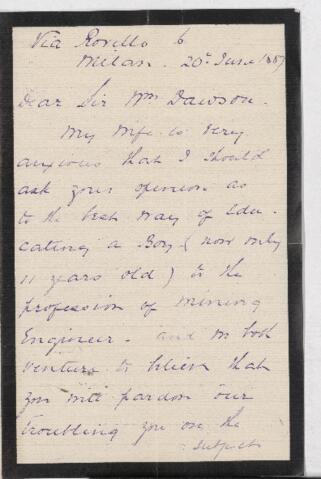 Via Rovello 6
Milan. 20 June 1887
Dear Sir Wm Dawson.
My wife is very
anxious that I should
ask your opinion as
to the best way of Edu-
cating a Boy (now only
11 years old) to the
profession of mining
Engineer - and we both
venture to believe that
you will pardon our
troubling you on the
subject